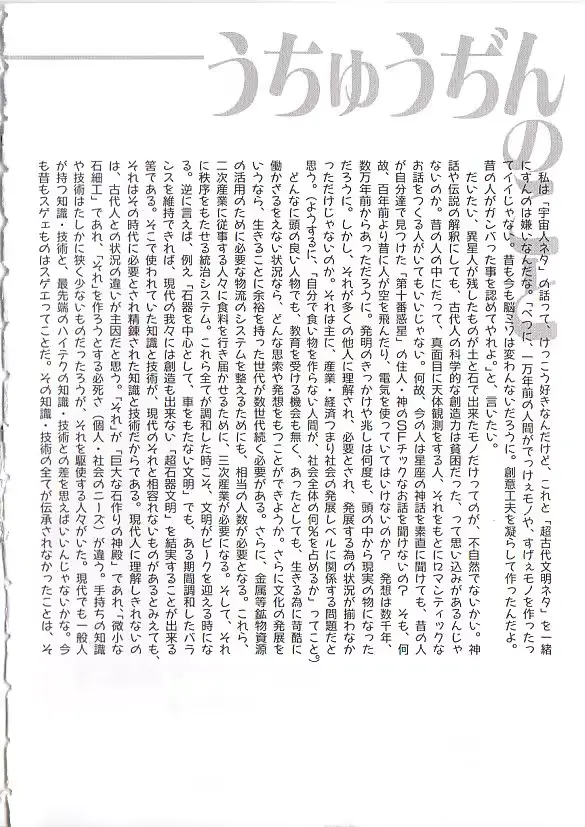 うちゅうぢんの
私は「宇宙人ネタ」の話って、けっこう好きなんだけど、これと「超古代文明ネタ」を一緒
にすんのは嫌いなんだな。「べつに、一万年前の人間がでっけぇモノや、すげぇモノを作ったっ
てイイじゃない。昔も今も脳ミソは変わんないだろうに。創意工夫を凝らして作ったんだよ。
昔の人がガンバった事を認めてやれよ。」と、言いたい。
だいたい、異星人が残したものが土と石で出来たモノだけってのが、不自然でないかい。神
話や伝説の解釈にしても、古代人の科学的な創造力は貧困だった、って思い込みがあるんじゃ
ないのか。昔の人の中にだって、真面目に天体観測をする人、それをもとにロマンティックな
お話をつくる人がいてもいいじゃない。何故、今の人は星座の神話を素直に聞けても、昔の人
が自分達で見つけた「第十番惑星」の住人・神のSFチックなお話を聞けないの？　そも、何
故、百年前より昔に人が空を飛んだり、電気を使っていてはいけないのか？　発想は数千年、
数万年前からあっただろうに。発明のきっかけや兆しは何度も、頭の中から現実の物になった
だろうに。しかし、それが多くの他人に理解され、必要とされ、発展する為の状況が揃わなか
っただけじゃないのか。それは主に、産業・経済つまり社会の発展レベルに関係する問題だと
思う。（ようするに、「自分で食い物を作らない人間が、社会全体の何％を占めるか」ってこと。）
どんなに頭の良い人物でも、教育を受ける機会も無く、あったとしても、生きる為に苛酷に
働かざるをえない状況なら、どんな思索や発想をもつことができようか。さらに文化の発展を
いうなら、生きることに余裕を持った世代が数世代続く必要がある。さらに、金属等鉱物資源
の活用のために必要な物流のシステムを整えるためにも、相当の人数が必要となる。これら、
二次産業に従事する人々に食料を行き届かせるために、三次産業が必要になる。そして、それ
に秩序をもたせる統治システム。これら全てが調和した時こそ、文明がピークを迎える時にな
る。逆に言えば、例え「石器を中心として、車をもたない文明」でも、ある期間調和したバラ
ンスを維持できれば、現代の我々には創造も出来ない「超石器文明」を結実することが出来る
筈である。そこで使われていた知識と技術が、現代のそれと相容れないものがあるとみえても、
それはその時代に必要とされ精錬された知識と技術だからである。現代人に理解しきれないの
は、古代人との状況の違いが主因だと思う。「それ」が「巨大な石作りの神殿」であれ、「微小な
石細工」であれ、「それ」を作ろうとする必死さ（個人・社会のニーズ）が違う。手持ちの知識
や技術はたしかに狭く少ないものだったろうが、それを駆使する人々がいた。現代でも一般人
が持つ知識・技術と、最先端のハイテクの知識・技術との差を思えばいいんじゃないかな。今
も昔もスゲェものはスゲエってことだ。その知識・技術の全てが伝承されなかったことは、そ